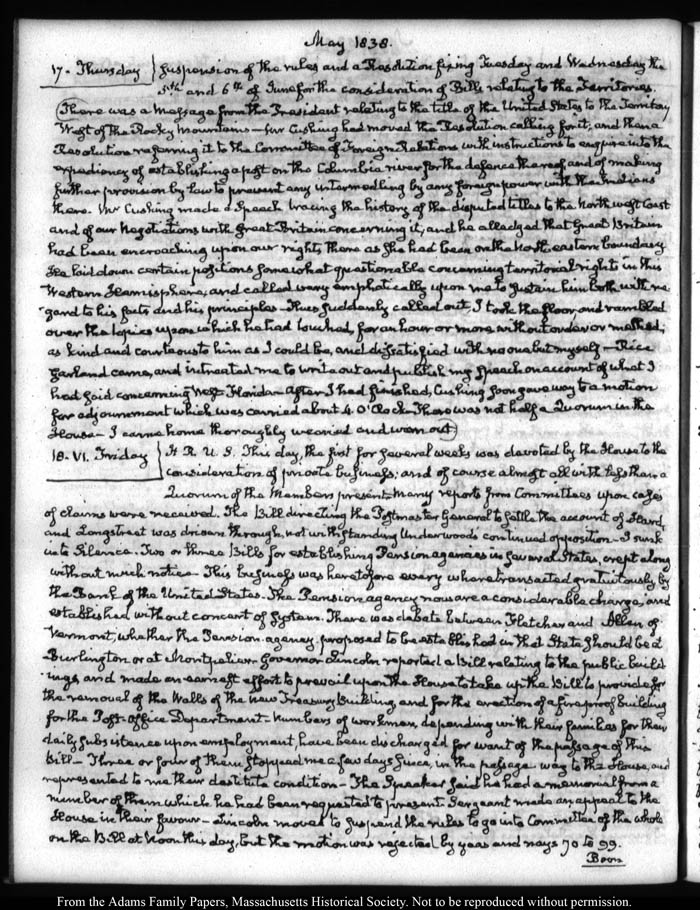 May 1838.
17. Thursday } suspension of the rules and a Resolution fixing Tuesday and Wednesday the
5th and 6th of June for the consideration of Bills relating to the Territories.
There was a Message from the President relating to the title of the United States to the Territory
West of the Rocky Mountains — Cushing had moved the Resolution calling for it, and then a
Resolution referring it to the Committee of Foreign Relations with instructions to enquire into the
expediency of establishing a post on the Columbia river for the defence thereof and of making
further provision by law to prevent any intermedling by any foreign power with the Indians
there. Mr Cushing made a Speech tracing the history of the disputed titles to the North west Coast
and of our Negotiations with Great Britain concerning it, and he alledged that Great Britain
had been encroaching upon our rights there as she had been on the North eastern boundary
He laid down certain positions somewhat questionable concerning territorial rights in this
Western Hemisphere, and called very emphatically upon me to sustain him both with re
gard to his facts and his principles — Thus suddenly called out, I took the floor and rambled
over the topics upon which he had touched, for an hour or more without order or method,
as kind and courteous to him as I could be, and dissatisfied with no one but myself — Rice
Garland came, and intreated me to write out and publish my Speech on account of what I
had said concerning West Florida — After I had finished, Cushing soon gave way to a motion
for adjournment which was carried about 4. O'Clock. There was not half a Quorum in the
House — I came home thoroughly wearied and worn out
18. VI. Friday } H. R. U. S. This day, the first for several weeks was devoted by the House to the
consideration of private business; and of course almost all with less than a
Quorum of the Members present. Many reports from Committees upon cases
of claims were received. The Bill directing the Postmaster General to settle the account of
and Longstreet was driven through, notwithstanding Underwoods continued opposition — I sunk
into Silence. Two or three Bills for establishing Pension agencies in several States, crept along
without much notice — This business was heretofore every where transacted gratuitously by
the Bank of the United States. The Pension agency now are a considerable charge, and
established without concert or System. There was debate between Fletcher and Allen of
Vermont, whether the Pension agency proposed to be established in that State should be at
Burlington or at Montpelier. Governor Lincoln reported a Bill relating to the public build
ings, and made an earnest effort to prevail upon the House to take up the Bill to provide for
the removal of the Walls of the new Treasury Building, and for the erection of a fireproof building
for the Post-office Department — Numbers of workmen, depending with their families for their
daily subsistence upon employment, have been discharged for want of the passage of this
Bill — Three or four of them stopped me a few days since, in the passage way to the House, and
represented to me their destitute condition — The Speaker said he had a memorial from a
number of them which he had been requested to present. Sergeant made an appeal to the
House in their favour — Lincoln moved to suspend the rules to go into Committee of the whole
on the Bill at Noon this day, but the motion was rejected by yeas and nays 70 to 99.
Boon
From the Adams Family Papers, Massachusetts Historical Society. Not to be reproduced without permission.